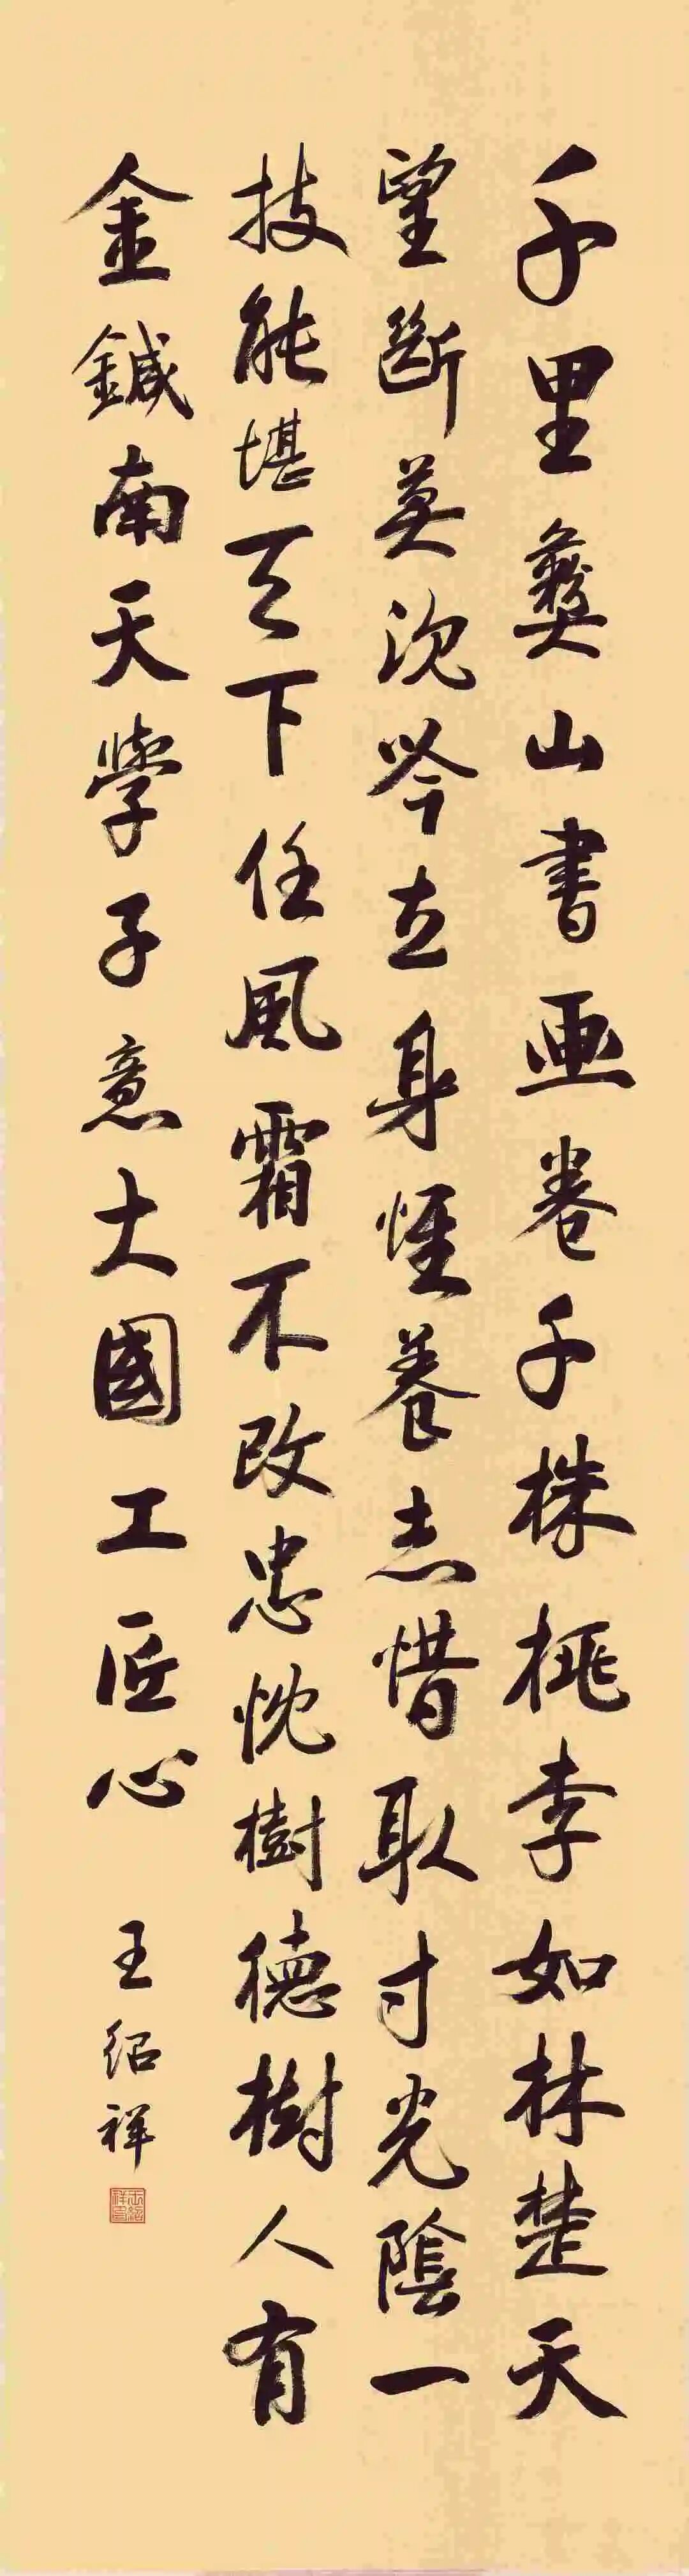 千里彝山書画卷千株桃李如林楚天
望斷莫沈吟立身惟養志惜取寸光陰一
技能堪天下任風霜不改忠忱樹德樹人有
金鍼南天學子意大國工匠心
王紹祥